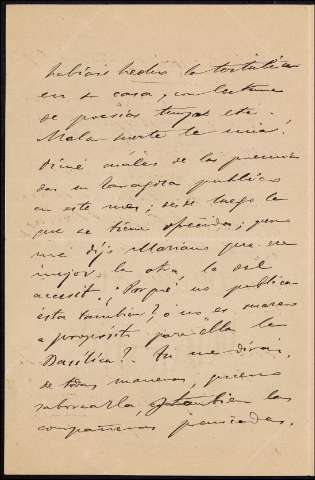 habíais hecho la tertulia
en su casa, con lectura
de poesías, tempus est.
Mala suerte la mía!
Dime cuáles de las premia
das en Zaragoza publica
en este mes; desde luego la
que se tiene ofrecida; pero
me dijo Mariano que era
mejor la otra, la del
accesit. ¿Porqué no publica
esta tambien? o no es marco
a propósito para ella la
Basílica? Tu me dirás.
de todas maneras, quiero
saborearla, y tambien las
compañeras premiadas.